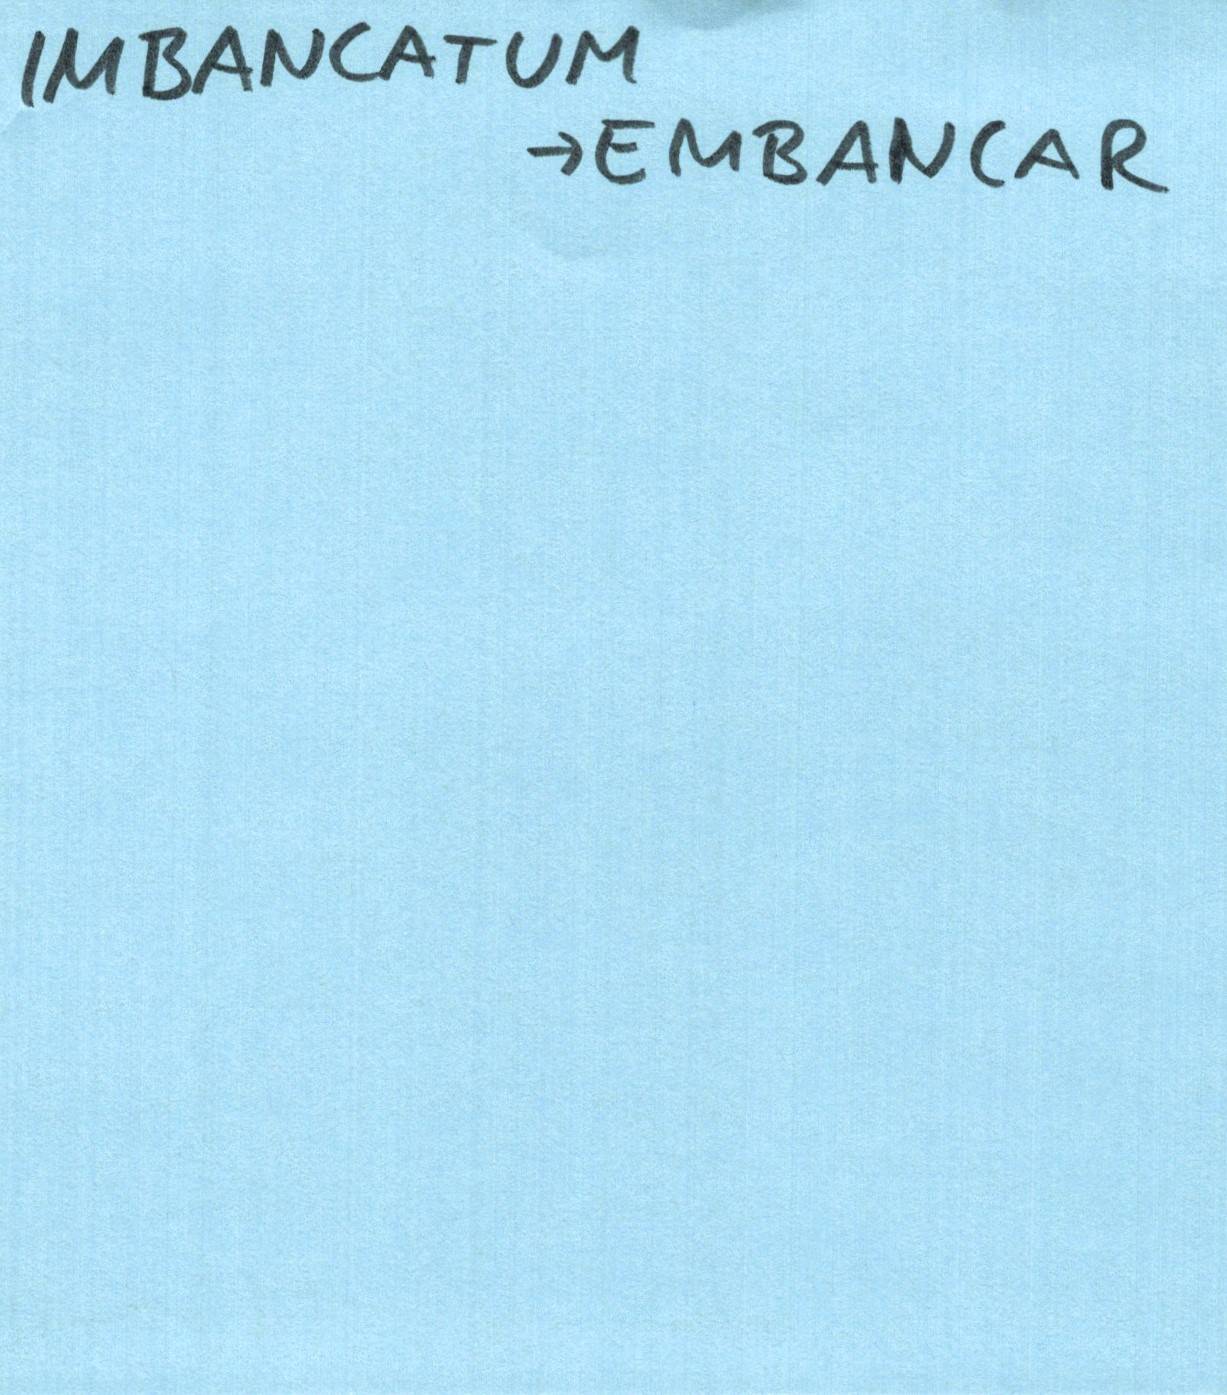 IMBANCATUM
→EMBANCAR